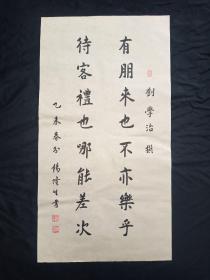 劉學治 撰
有朋來也不亦樂乎
待客禮也哪能差次
乙未春分 楊隆生書